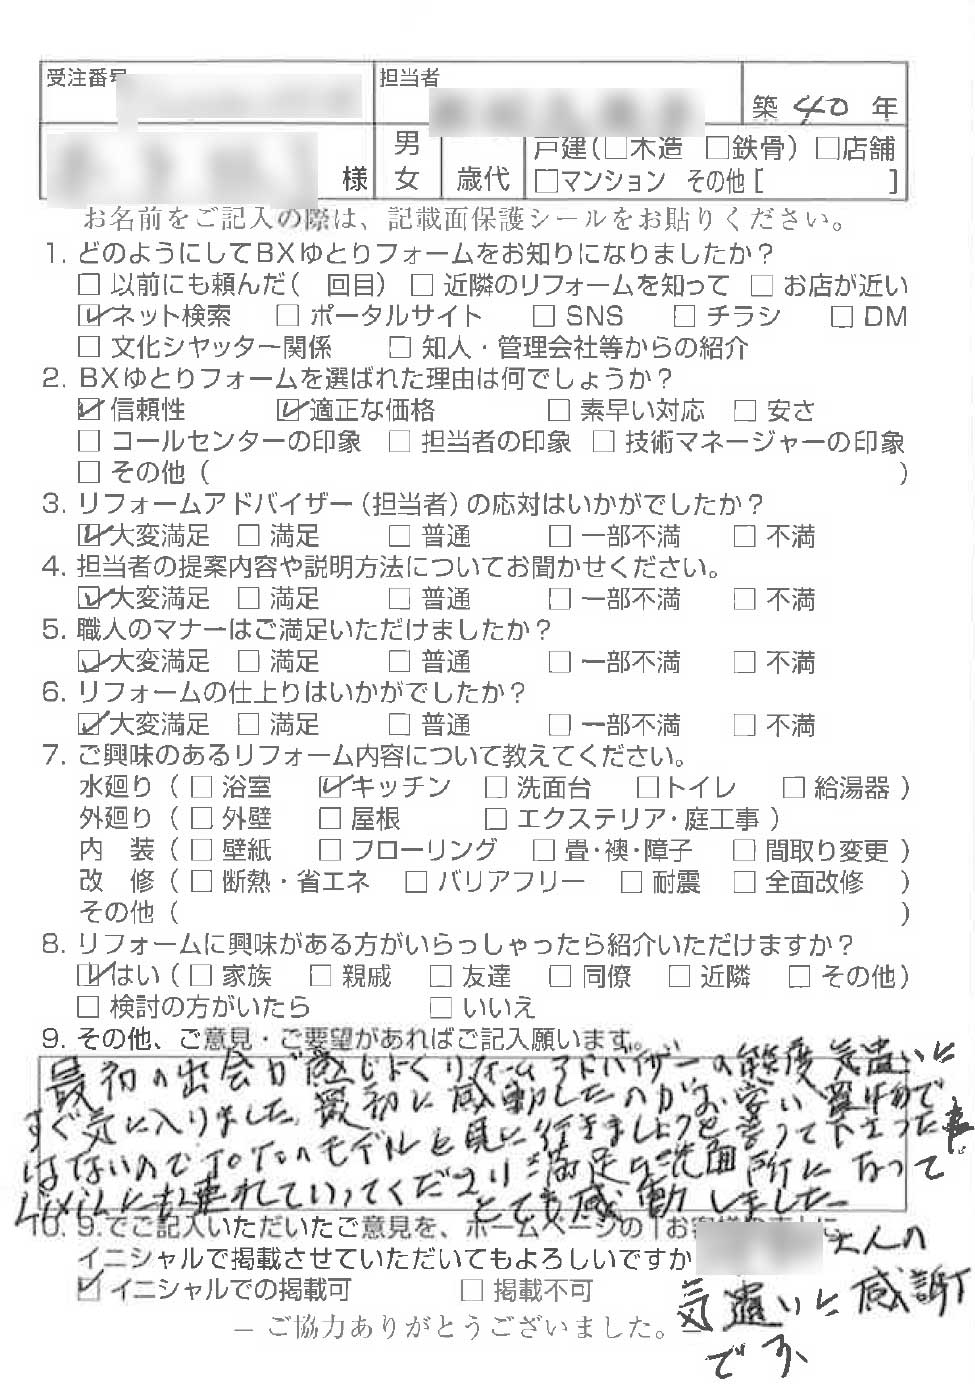 受注番号
担当者
築 40 年
様
男
女
歳代
戸建(□木造 □鉄骨) □店舗
□マンション その他[ ]
お名前をご記入の際は、記載面保護シールをお貼りください。
1. どのようにしてBXゆとりフォームをお知りになりましたか?
□ 以前にも頼んだ( 回目) □ 近隣のリフォームを知って □ お店が近い
☑ネット検索 □ ポータルサイト □ SNS □ チラシ □ DM
□ 文化シヤッター関係 □ 知人・管理会社等からの紹介
2. BXゆとりフォームを選ばれた理由は何でしょうか?
☑ 信頼性 ☑適正な価格 □ 素早い対応 □ 安さ
□ コールセンターの印象 □ 担当者の印象 □ 技術マネージャーの印象
□ その他 ( )
3. リフォームアドバイザー(担当者)の応対はいかがでしたか?
☑大変満足 □ 満足 □ 普通 □ 一部不満 □ 不満
4. 担当者の提案内容や説明方法についてお聞かせください。
☑大変満足 □ 満足 □ 普通 □ 一部不満 □ 不満
5. 職人のマナーはご満足いただけましたか?
☑大変満足 □ 満足 □ 普通 □ 一部不満 □ 不満
6. リフォームの仕上りはいかがでしたか?
☑大変満足 □ 満足 □ 普通 □ 一部不満 □ 不満
7. ご興味のあるリフォーム内容について教えてください。
水廻り ( □ 浴室 ☑キッチン □ 洗面台 □トイレ □ 給湯器 )
外廻り ( □ 外壁 □ 屋根 □ エクステリア・庭工事 )
内 装 ( □ 壁紙 □ フローリング □ 畳・襖・障子 □ 間取り変更 )
改 修 ( □ 断熱・省エネ □ バリアフリー □ 耐震 □ 全面改修 )
その他 ( )
8. リフォームに興味がある方がいらっしゃったら紹介いただけますか?
☑はい ( □ 家族 □ 親戚 □ 友達 □ 同僚 □ 近隣 □ その他)
□ 検討の方がいたら □ いいえ
9. その他、ご意見・ご要望があればご記入願います。
最初の出会が感じよくリフォームアドバイザーの態度 気遣いに
すぐ気に入りました。最初に感動したのがお安い買物で
はないのでTOTOのモデルを見に行きましょうと言って下さった事。
LIXILにも連れていってくださり満足な洗面所になって
とても感動しました。
10. 9.でご記入いただいたご意見を、ホームページの「お客様の声」に
イニシャルで掲載させていただいてもよろしいですか
☑イニシャルでの掲載可 □ 掲載不可
人の
気遣いに感謝
です。
― ご協力ありがとうございました。―